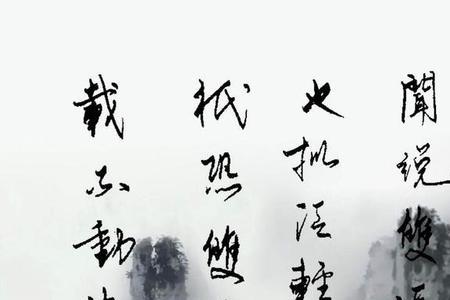 聞说雙
也拟泛輕
祇恐雙
載不動